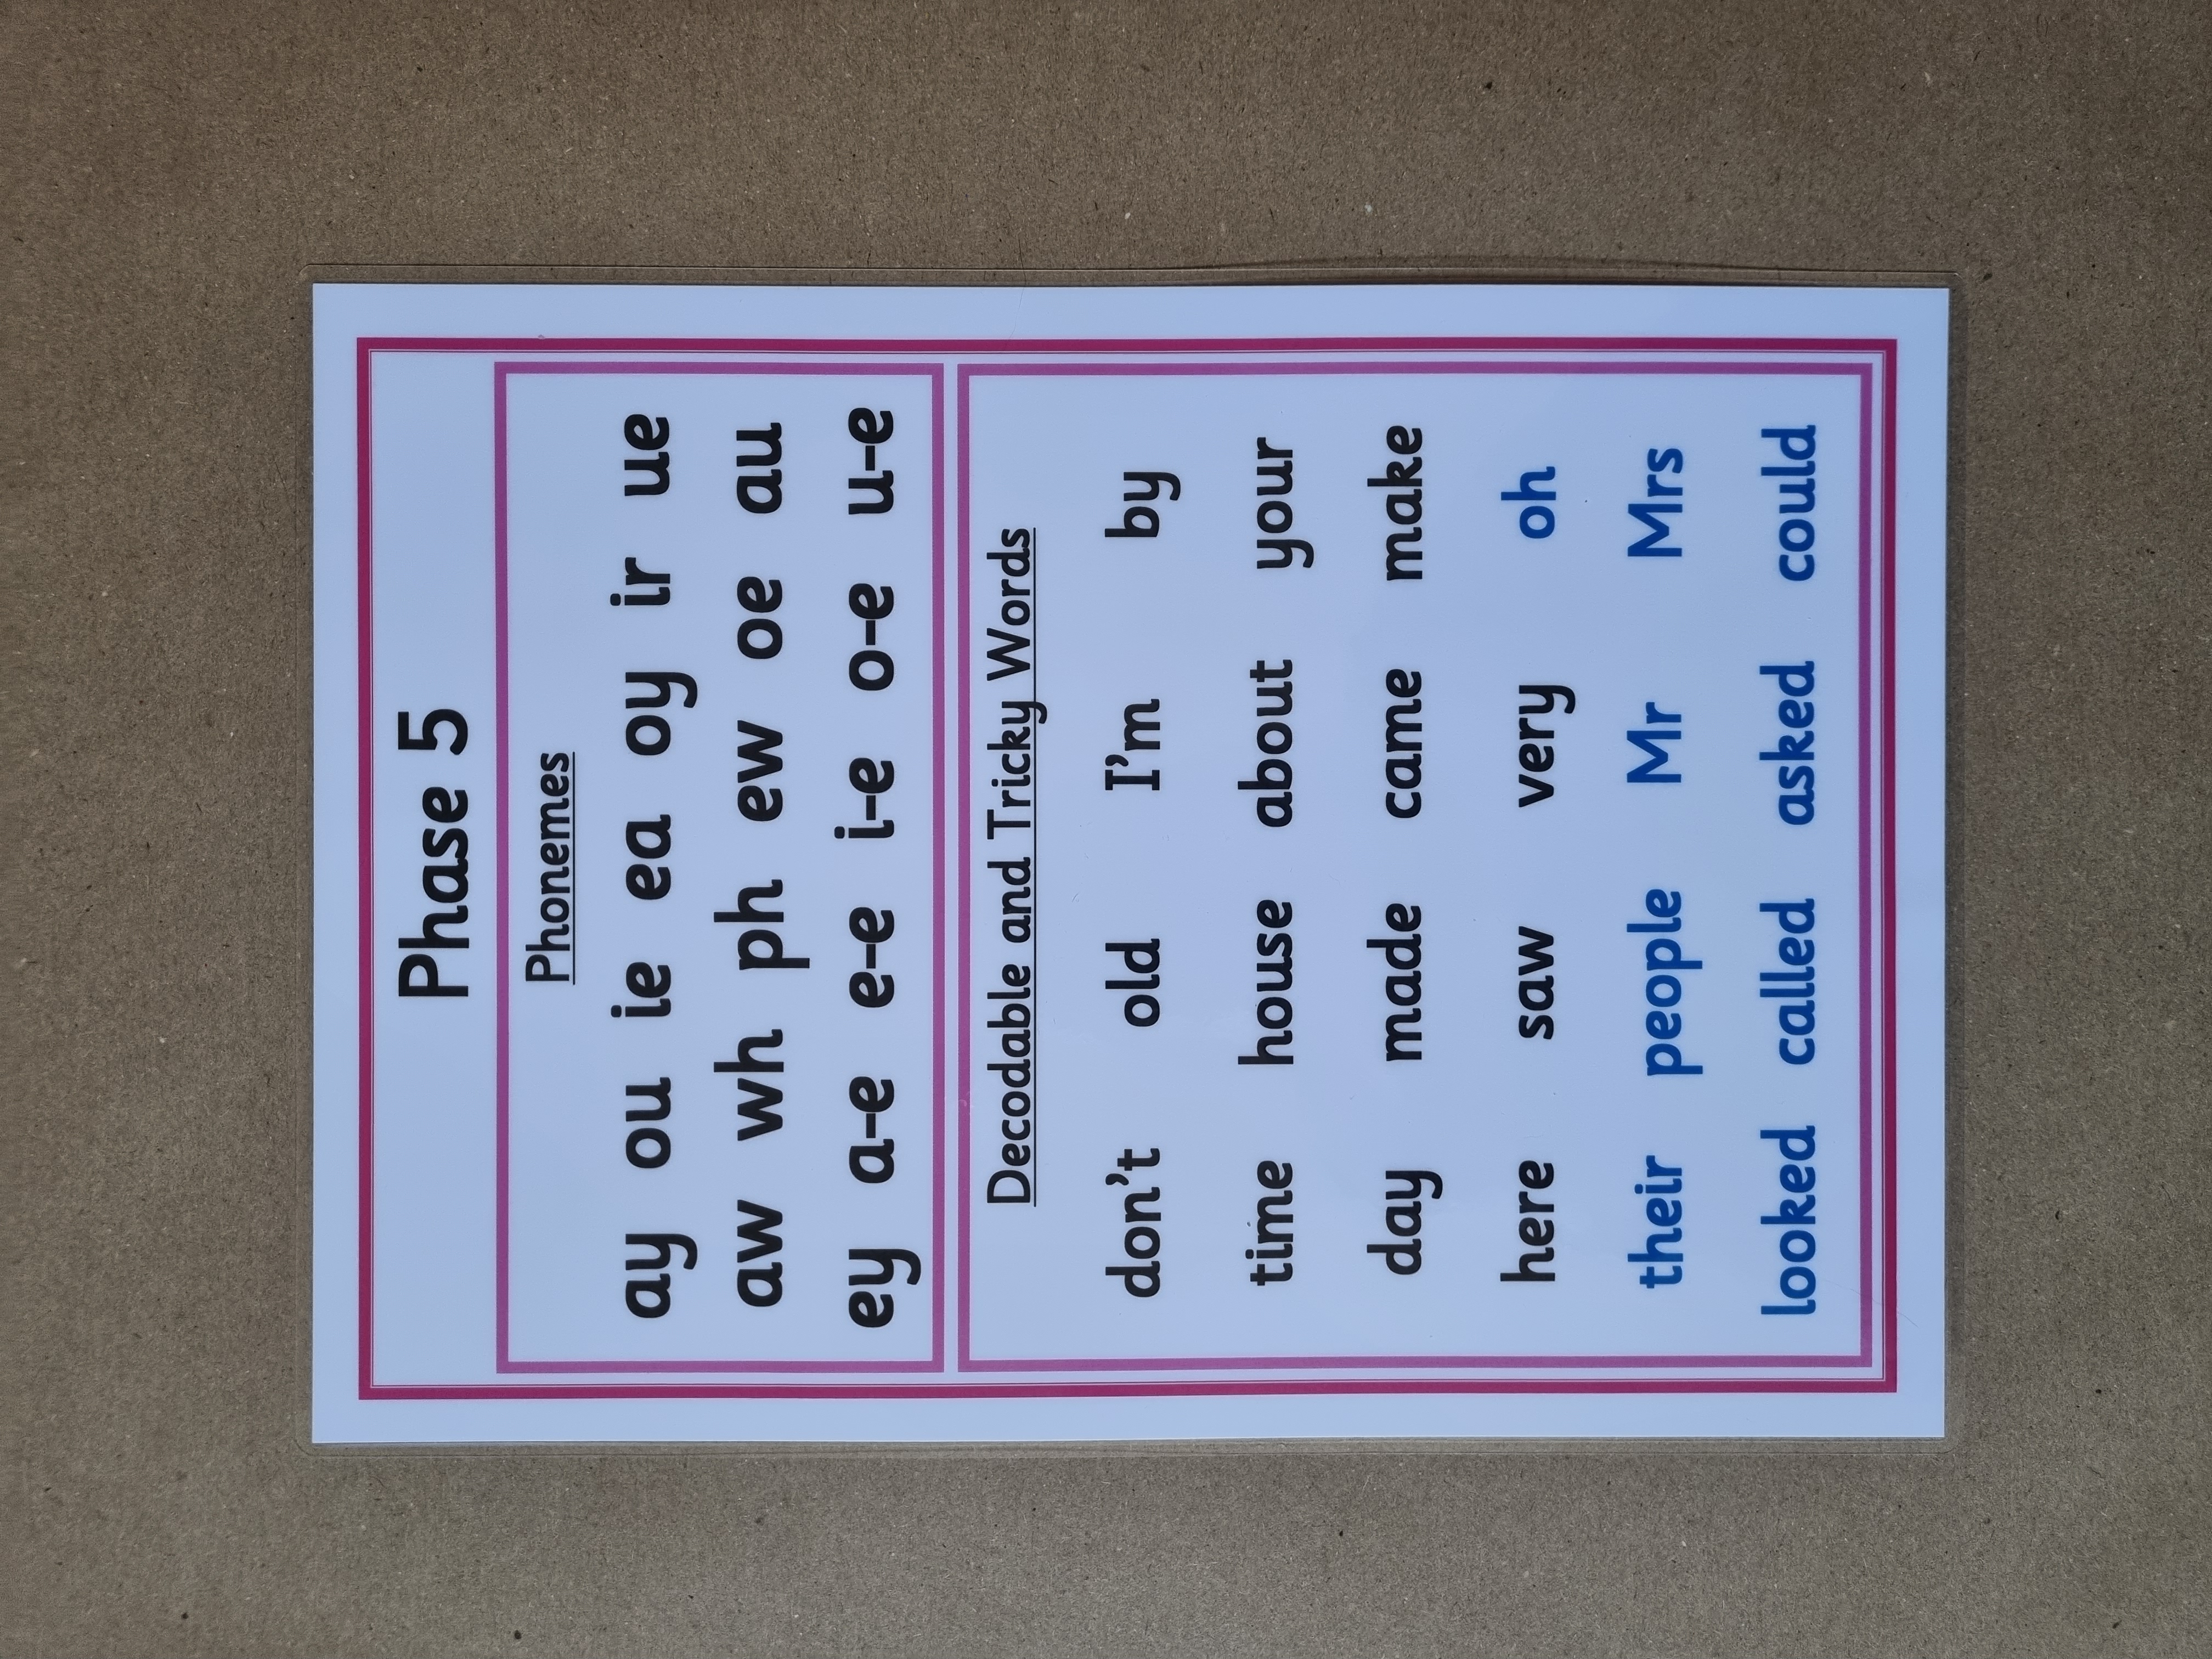 Phase 5
Phonemes
ay ou ie ea oy ir ue
aw wh ph ew oe au
ey a-e e-e i-e o-e u-e
Decodable and Tricky Words
don't old I'm by
time house about your
day made came make
here saw very oh
their people Mr Mrs
looked called asked could